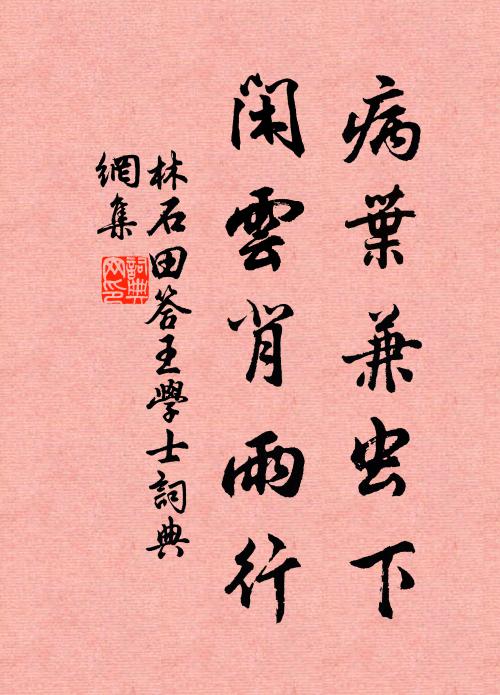 病葉兼虫下
閑雲肖雨行
林石田答王學士詞典
網集
詞典
网印